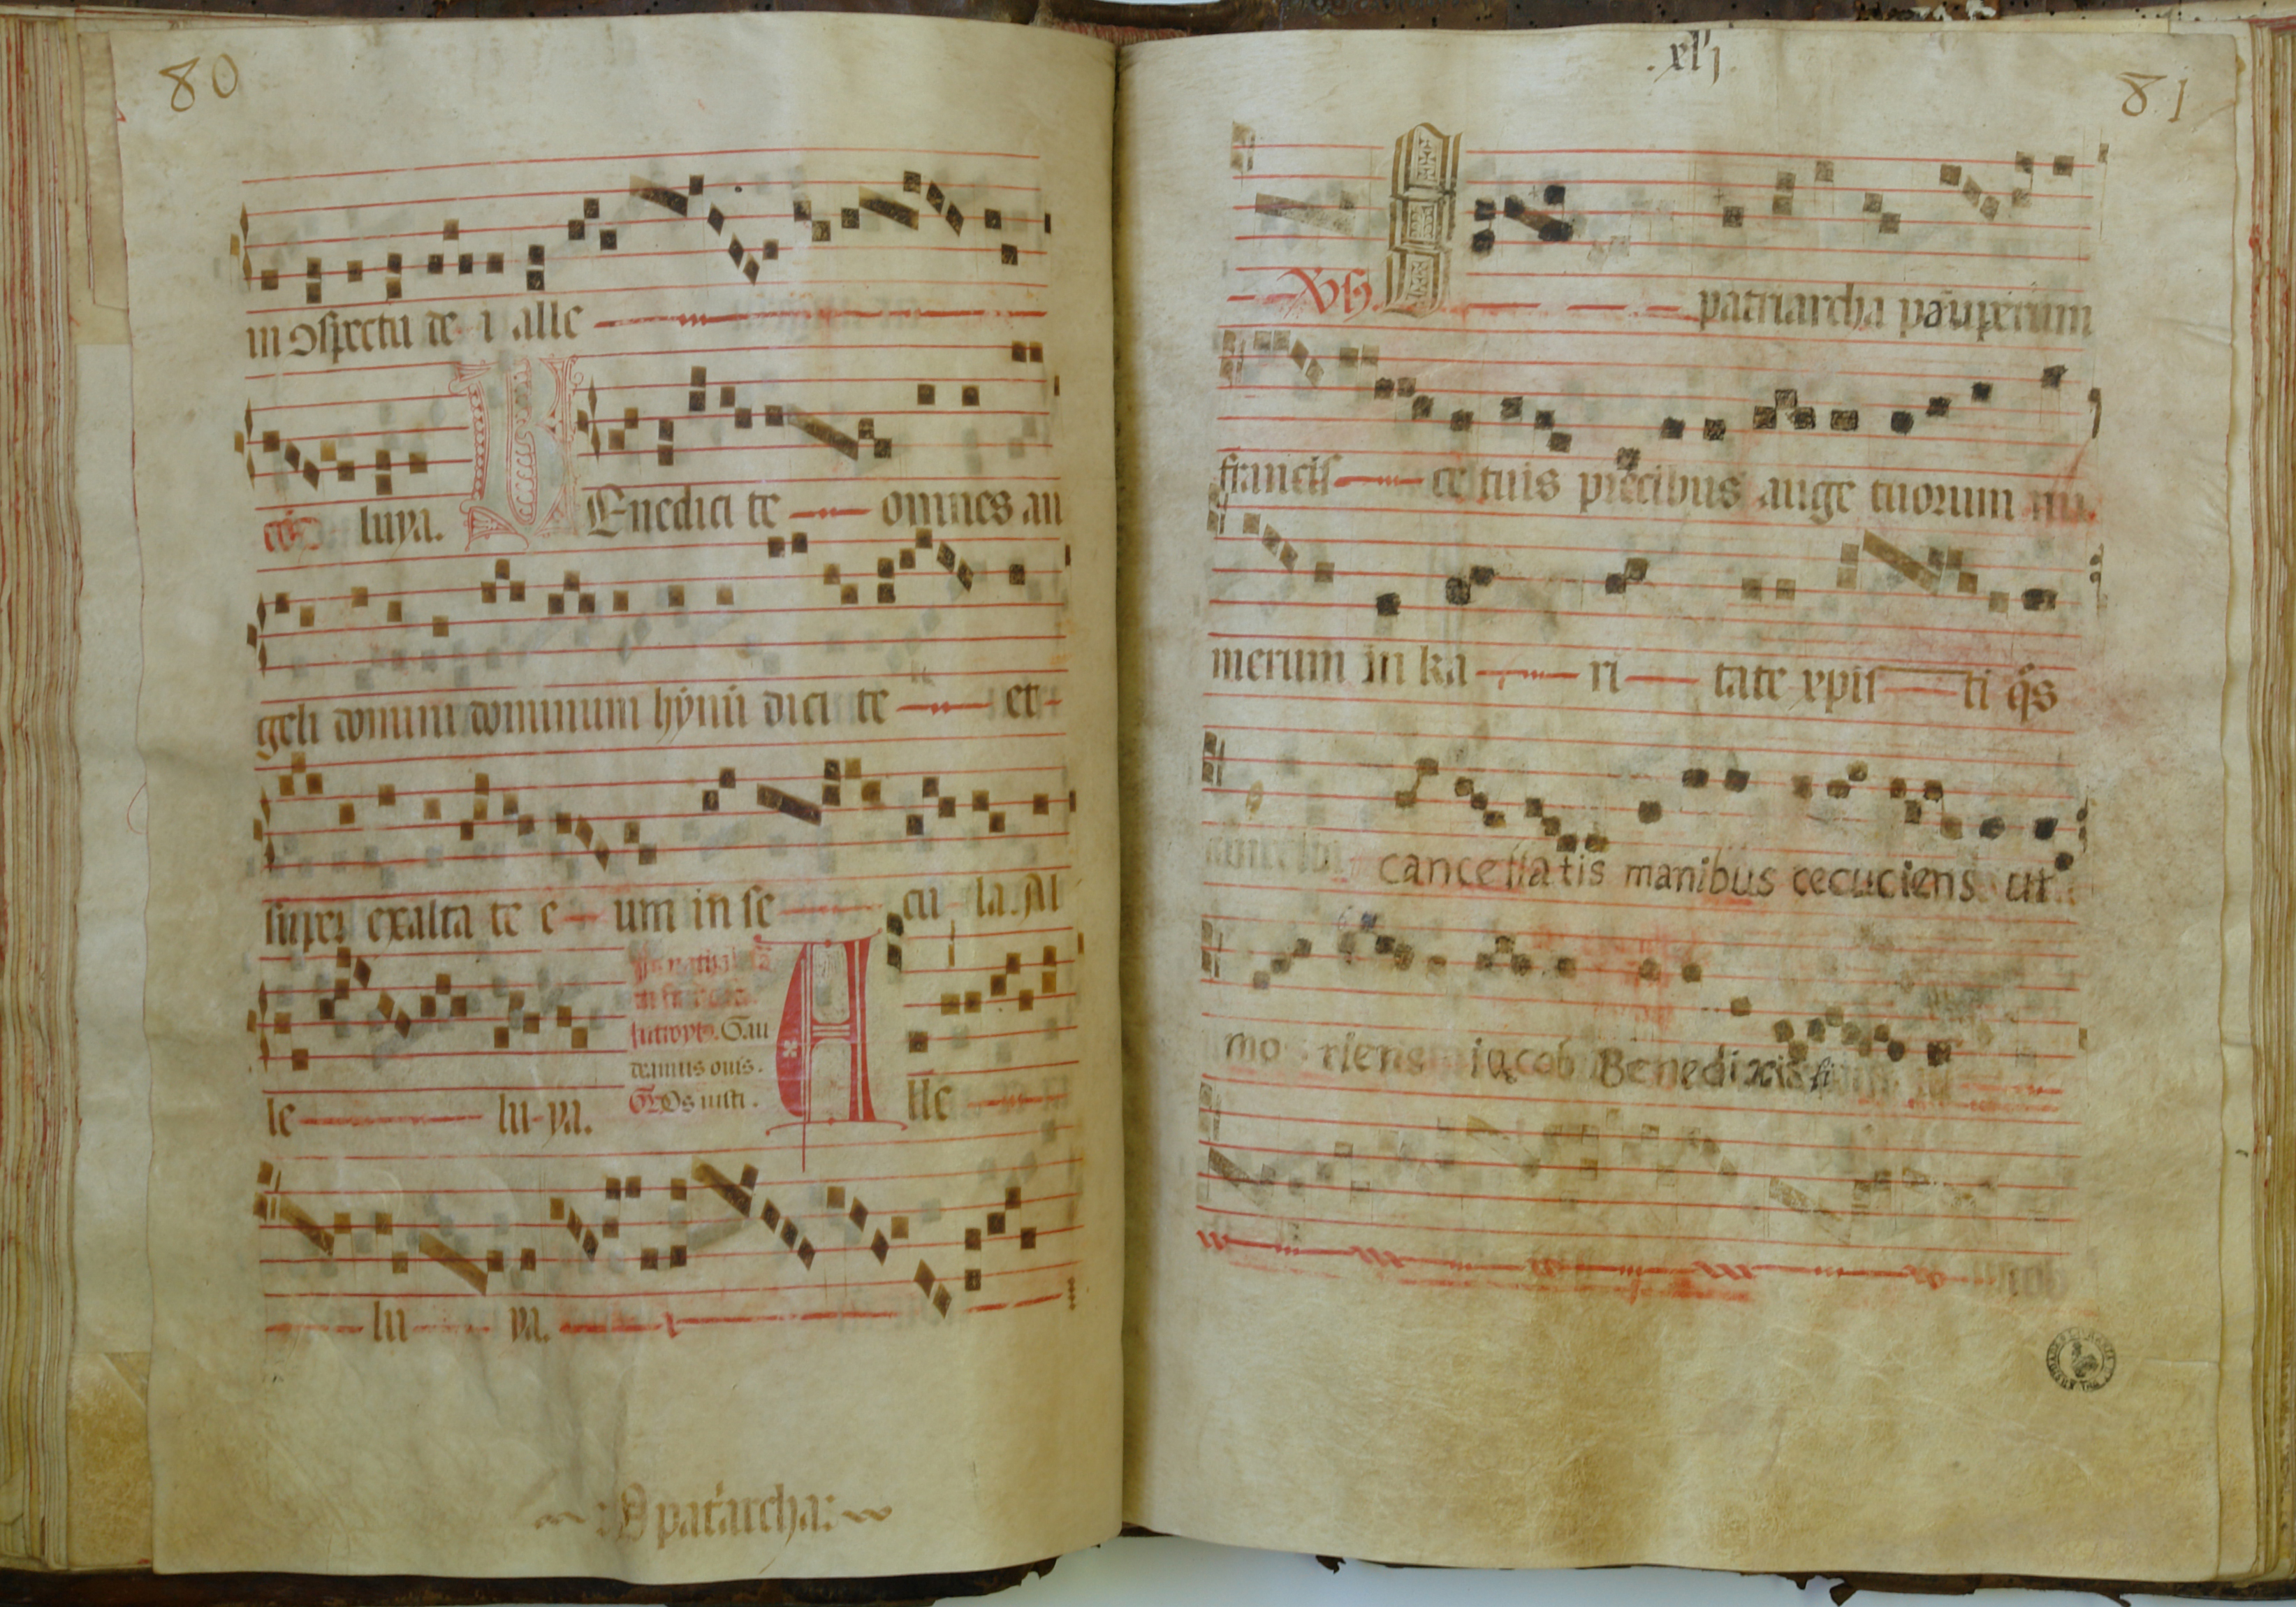 80
in ɔspectu de i alle
luya. Benedici te omnes an
geli domini dominum hẏnũ dici te et
super exalta te e um in se cu la. Al
introyt9. Gau
deamus
Os iusti.
le lu ya. Alle
lu ya.
: O pat̃archa:
.xlj.
81
patriarcha pauperum
francis ce tuis precibus auge tuorum nu
merum in ka ri tate xpis ti q̃s
cancellatis manibus cecuciens ut
mo riens iacob Benedixisti